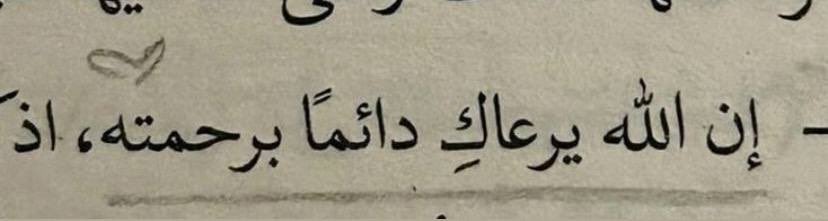 - إن الله يرعاكِ دائمًا برحمته، اذ